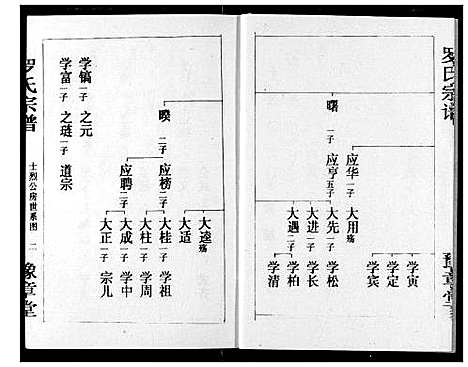 罗氏宗谱
豫章堂
曙 一子
应华 一子
应亨 五子
大用 殇
大先 一子
大进 一子
大遇 二子
学寅
学定
学宾
学松
学长
学柏
学清
暌 二子
应榜 二子
应聘 二子
大逵 殇
大适
大桂 一子
大柱 一子
大成 一子
大正 一子
学祖
学周
学中
宗儿
学镐 一子 之元
学富 一子 之琏 一子 道宗
罗氏宗谱
士烈公房世系图 二
豫章堂